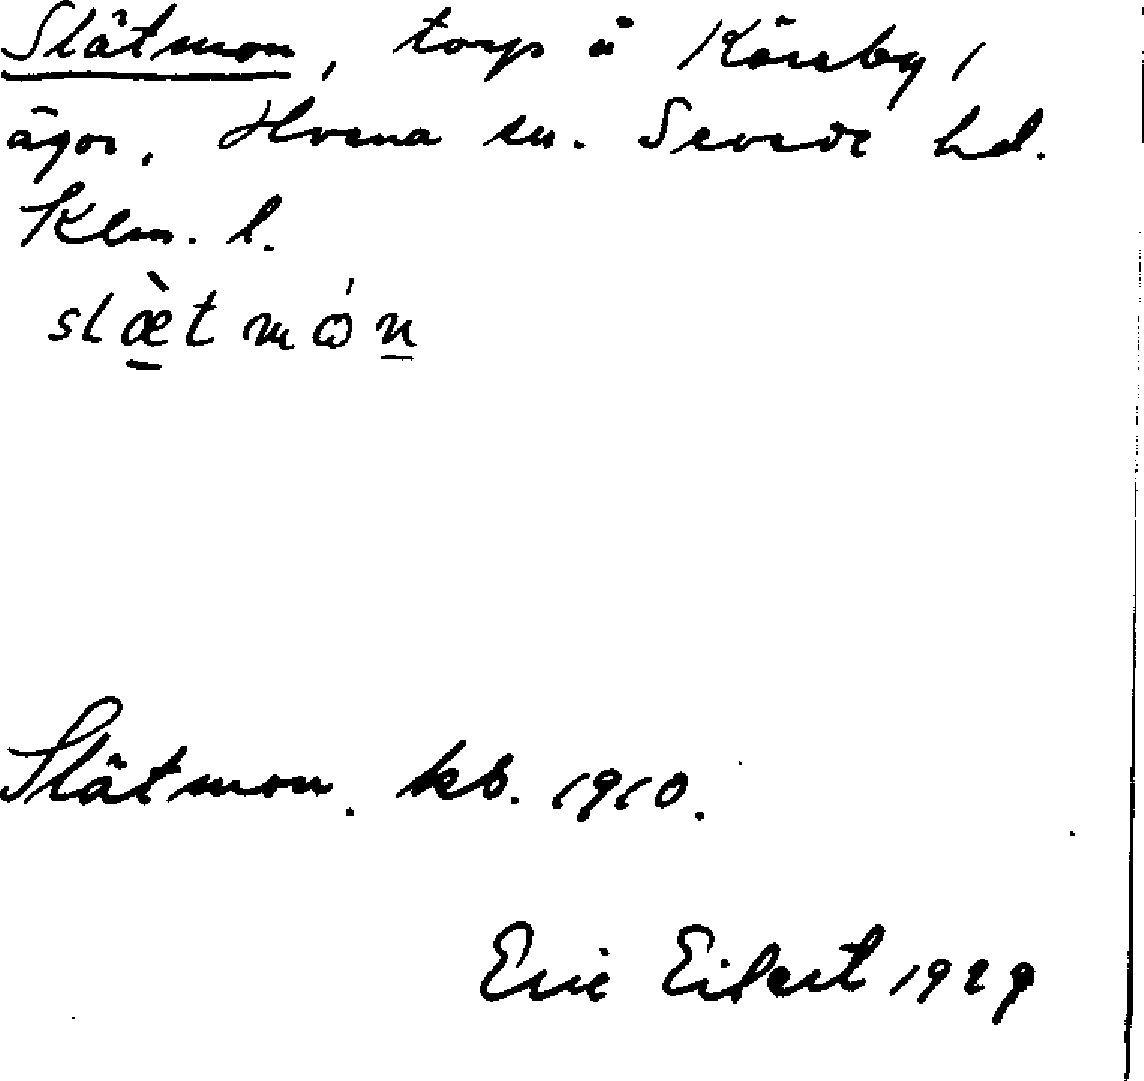 Slätmon, torp å Kärrby /
ägor, Horna sn. Sevede hd.
Klm. l.
slæ̀tmón
Slätmon. kb. 1910.
Eric Eilert 1929